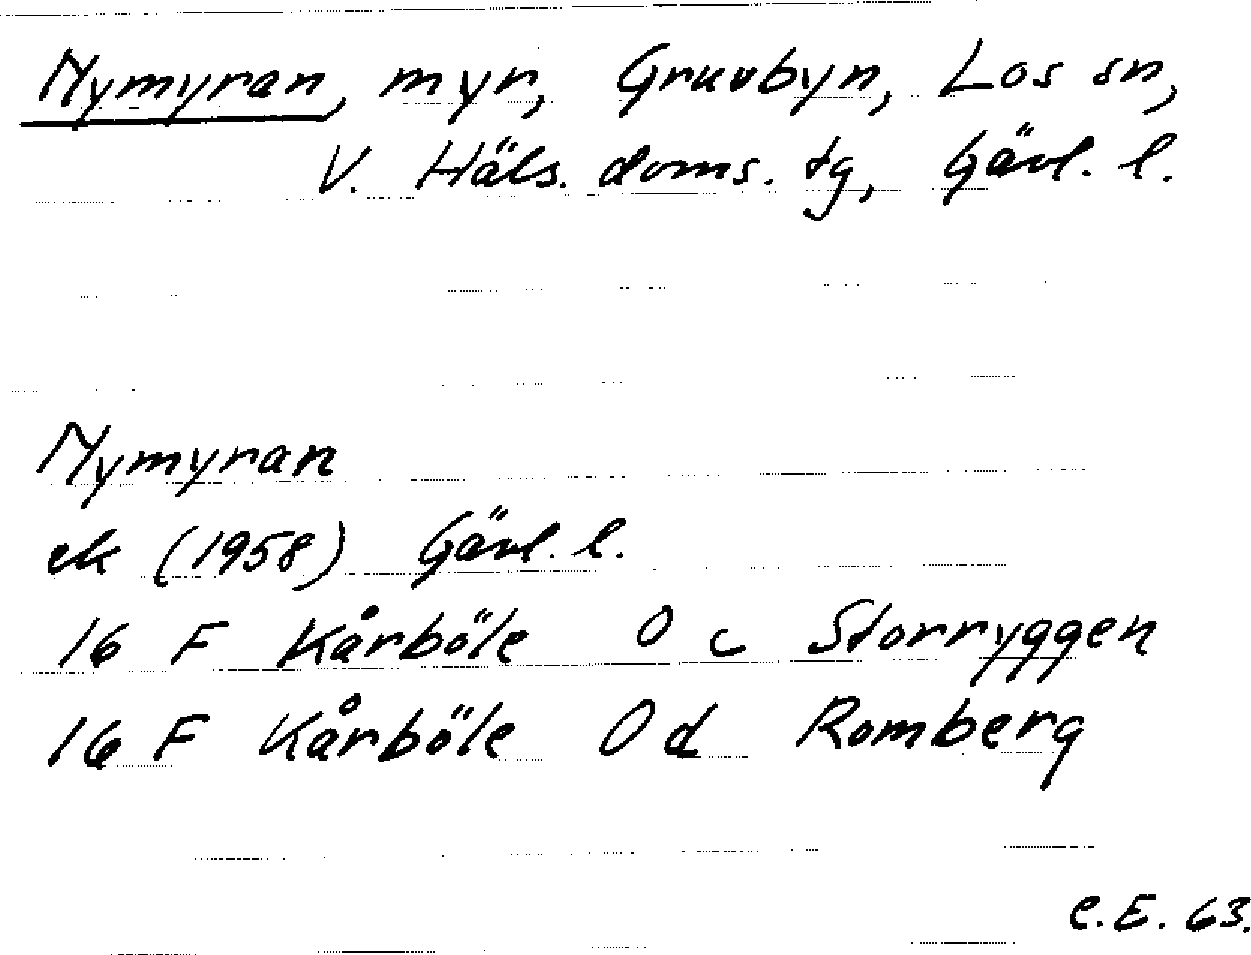 Nymyran, myr, Gruvbyn, Los sn,
V. Häls. doms. tg, Gävl. l.
Nymyran
ek (1958) Gävl. l.
16 F Kårböle 0 c Storryggen
16 F Kårböle 0 d Romberg
C.E. 63.